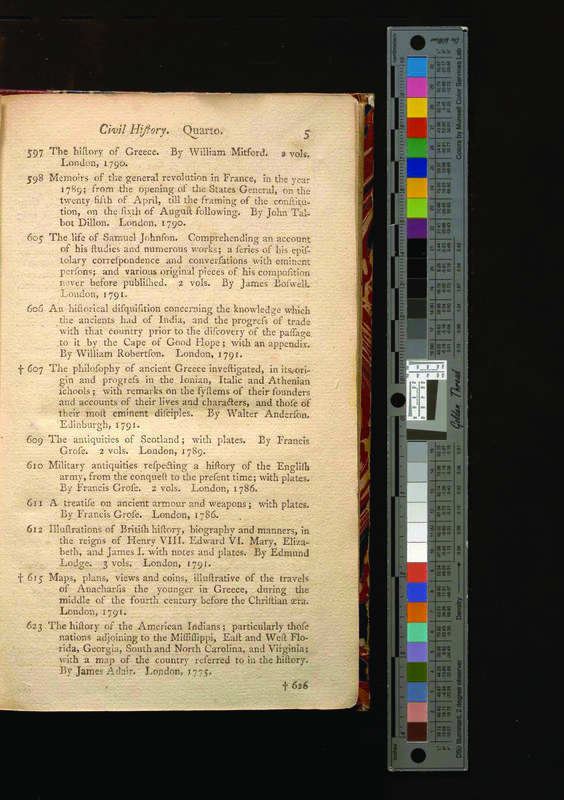 Civil Hiſtory. Quarto. 5
597 The hiſtory of Greece. By William Mitford. 2 vols.
London, 1790.
598 Memoirs of the general revolution in France, in the year
1789; from the opening of the States General, on the
twenty-fifth of April, till the framing of the conſtitu-
tion, on the ſixth of Auguſt following. By John Tal-
bot Dillon. London, 1790.
605 The life of Samuel Johnſon. Comprehending an account
of his ſtudies and numerous works; a ſeries of his epiſ-
tolary correſpondence and converſations with eminent
perſons; and various original pieces of his compoſition
never before publiſhed. 2 vols. By James Boſwell.
London, 1791.
606 An hiſtorical diſquiſition concerning the knowledge which
the ancients had of India, and the progreſs of trade
with that country prior to the diſcovery of the paſſage
to it by the Cape of Good Hope; with an appendix.
By William Robertſon. London, 1791.
† 607 The philoſophy of ancient Greece inveſtigated, in its ori-
gin and progreſs in the Ionian, Italic and Athenian
ſchools; with remarks on the ſyſtems of their founders
and accounts of their lives and characters, and thoſe of
their moſt eminent diſciples. By Walter Anderſon.
Edinburgh, 1791.
609 The antiquities of Scotland; with plates. By Francis
Groſe. 2 vols. London, 1789.
610 Military antiquities reſpecting a hiſtory of the Engliſh
army, from the conqueſt to the preſent time; with plates.
By Francis Groſe. 2 vols. London, 1786.
611 A treatiſe on ancient armour and weapons; with plates.
By Francis Groſe. London, 1786.
612 Illuſtrations of Britiſh hiſtory, biography and manners, in
the reigns of Henry VIII. Edward VI. Mary, Eliza-
beth, and James I. with notes and plates. By Edmund
Lodge. 3 vols. London, 1791.
† 615 Maps, plans, views and coins, illuſtrative of the travels
of Anacharſis the younger in Greece, during the
middle of the fourth century before the Chriſtian æra.
London, 1791.
623 The hiſtory of the American Indians; particularly thoſe
nations adjoining to the Miſſiſippi, Eaſt and Weſt Flo-
rida, Georgia, South and North Carolina, and Virginia;
with a map of the country referred to in the hiſtory.
By James Adair. London, 1775.
† 626
Colors by Munsell Color Services Lab
Golden Thread
Density
D50 Illuminant, 2 degree observer